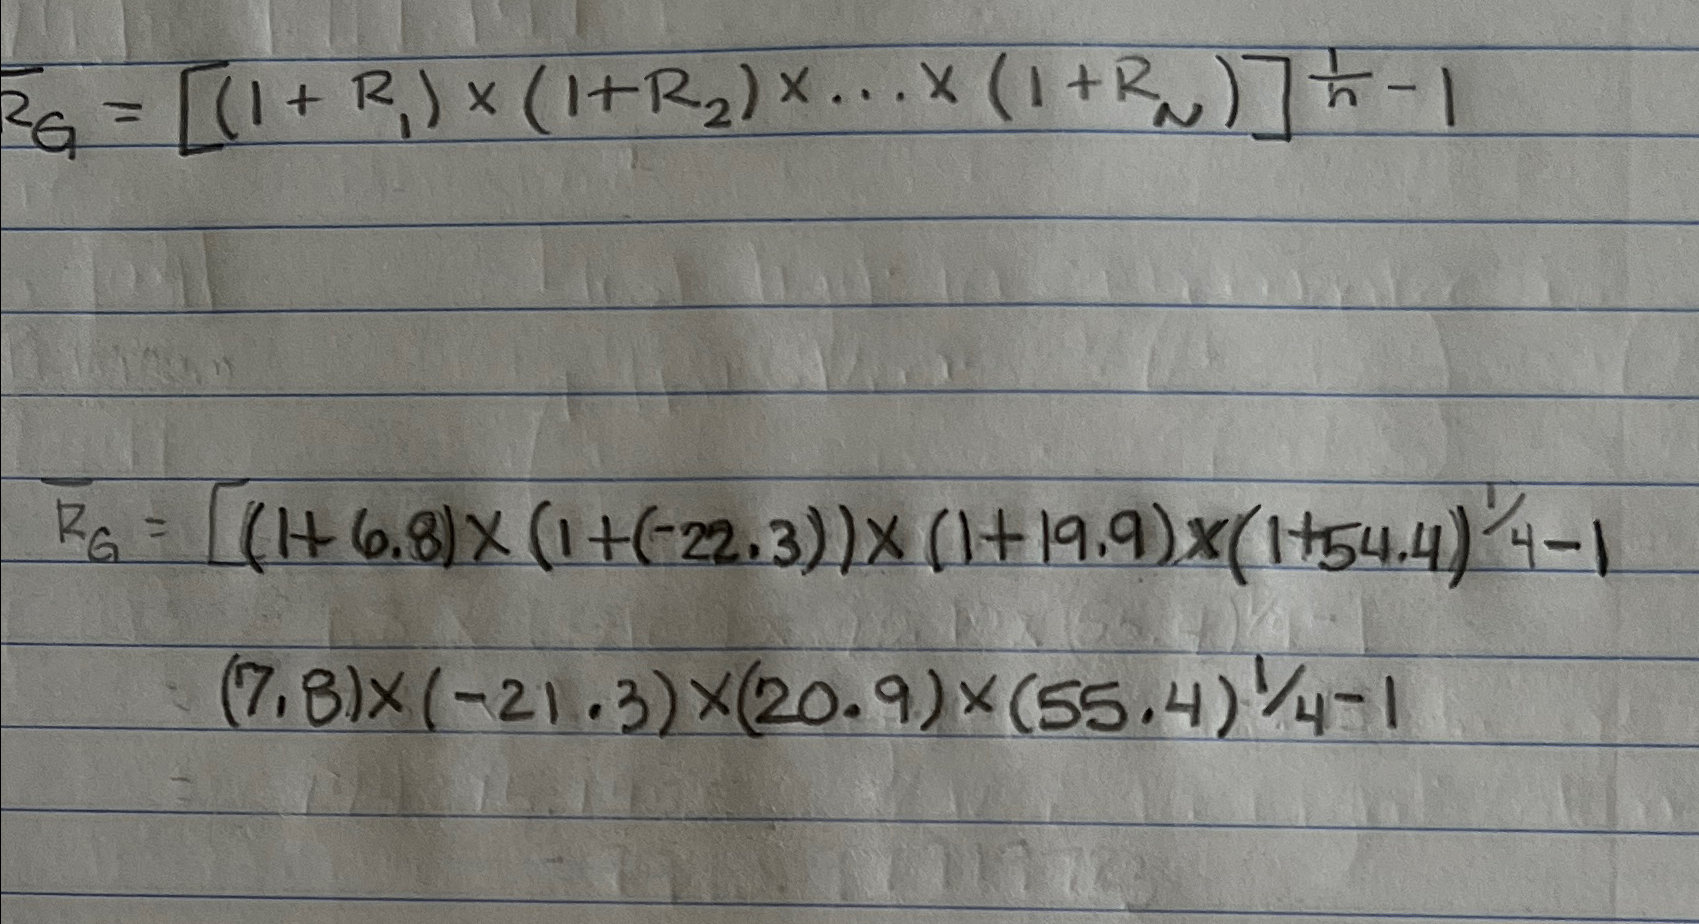 R̅G = [(1 + R₁) × (1+R₂) × ... × (1 + R_N)]^1/n - 1
R̅G = [(1+ 6.8) × (1 + (-22.3)) × (1 + 19.9) × (1+54.4)^1/4 - 1
(7.8) × (-21.3) × (20.9) × (55.4)^1/4 - 1
=